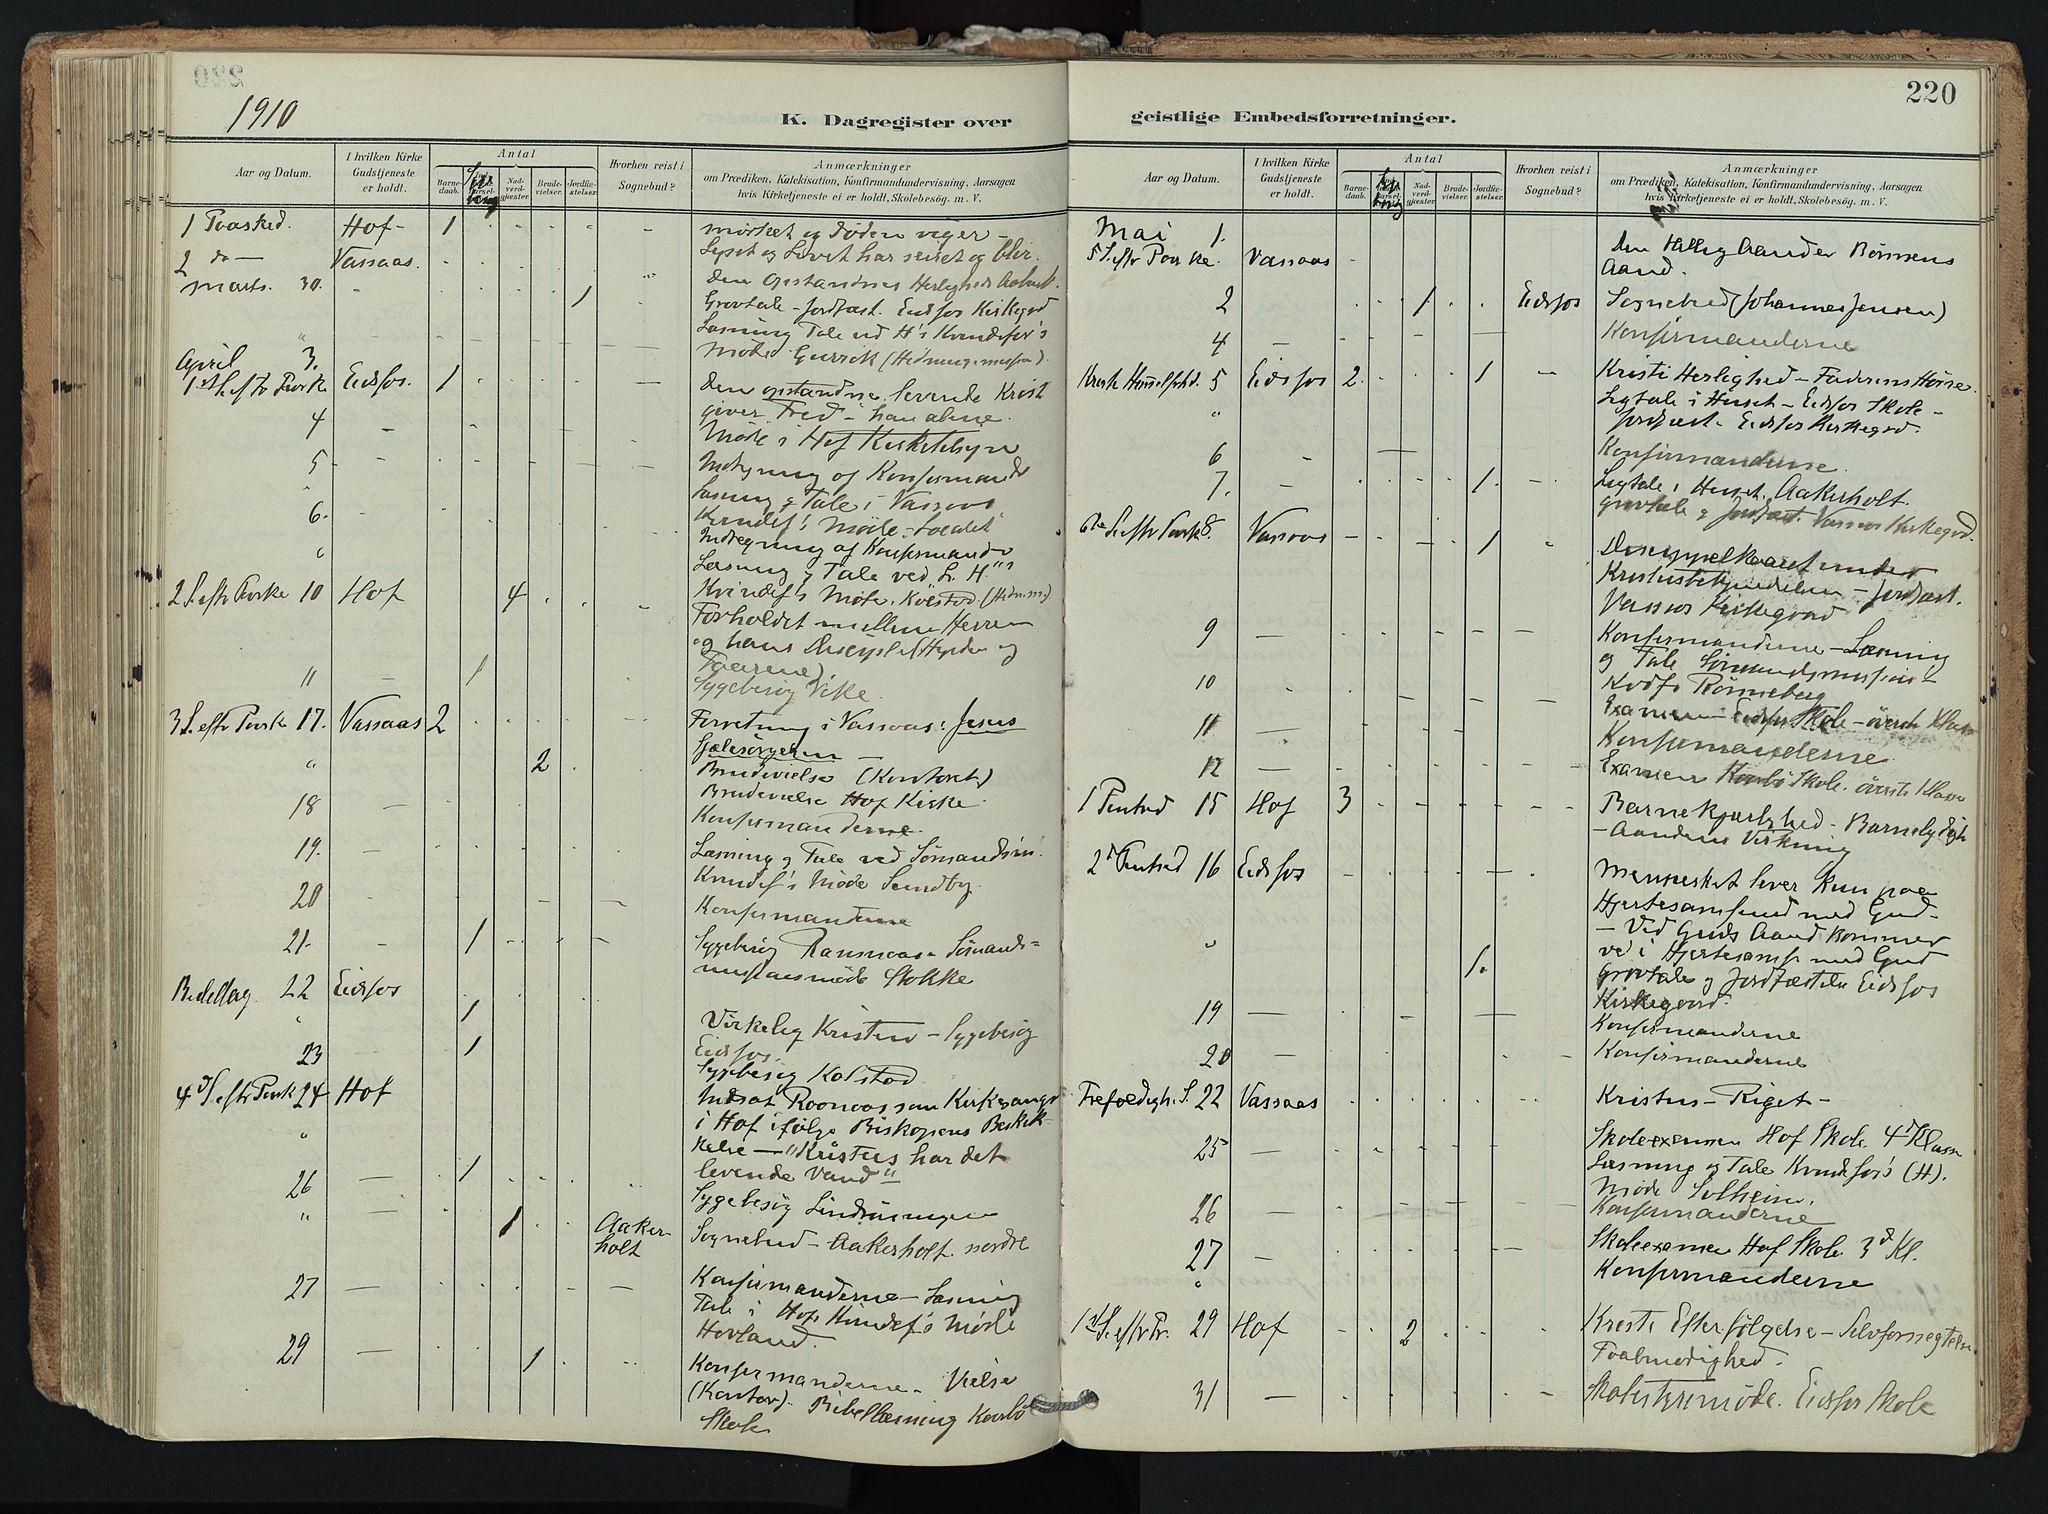 220
1910
K. Dagregister over
Aar og Datum.
I hvilken Kirke Gudstjeneste er holdt.
Antal
Barnedaab.
Nadverdgjæster.
Brudevielser.
Jordfæstelser.
Hvorhen reist i Sognebud?
Anmærkninger
om Prædiken, Katekisation, Konfirmandundervisning, Aarsagen
hvis Kirketjeneste ei er holdt, Skolebesøg. m. V.
1 Paasked. Hof - 1 Mørket og Døden viger -
2 do - Vassaas. Lyset og Livet har seiret og blir.
Marts. 30. 1 Den Opstandnes Herlighed
Gravtale - Jordfæst. Eidsfos Kirkegrd
Læsning Tale ved H's Kvindefor's
Møde
April 3.
1ste S. eftr Paaske Eidsfos. 1 Den opstandne levende Krist
giver Fred - han alene.
4 Møde i Hof Kirketilsyn
5 Indtegning af Konfirmander
Læsning & Tale i Vassaas
6. Kvindef's Møde -
" Indtegning af Konfirmander
Læsning & Tale ved
2 S. eftr Paaske 10 Hof 4 Kvindef's Møte. Kolstad. (Hedn.m.)
Forholdet mellem Herren
og hans Disciple (Hyrden og
Faarene)
11 1 Sygebesøg Vike.
3 S. eftr Paaske 17. Vassaas 2 Forretning i Vassaas: Jesus
Sjælesørgeren -
" 2 Brudevielse (Kontoret)
Brudevielse Hof Kirke.
18 - Konfirmanderne.
19. Læsning & Tale ved Sømandsm.
Kvindef's Møde Sundby.
20 Konfirmanderne
21. - 1 Sygebesøg Sømands=
missionsmøde Stokke
Bededag 22 Eidsfos
" 1 Virkelig Kristen - Sygebesøg
Eidsfos.
23 1 Sygebesøg Kolstad
4d S. eftr Paask 24 Hof Indsat som Kirkesanger
" i Hof ifølge Biskopens Beskik-
kelse - "Kristus har det
levende Vand"
26 - 1 Sygebesøg
" - 1 Aakerholt Sognebud - Aakerholt. nordre
27 - Konfirmanderne - Læsning
Tale i Hofs Kvindef's Møde
Hovland.
29 - 1 Konfirmanderne - Vielse
(Kontor). Bibellæsning
Skole
220
geistlige Embedsforretninger.
Aar og Datum.
I hvilken Kirke Gudstjeneste er holdt.
Antal
Barnedaab.
Nadverdgjæster.
Brudevielser.
Jordfæstelser.
Hvorhen reist i Sognebud?
Anmærkninger
om Prædiken, Katekisation, Konfirmandundervisning, Aarsagen
hvis Kirketjeneste ei er holdt, Skolebesøg. m. V.
Mai 1.
5 S. eftr Paaske. Vassaas Den Hellig Aand er Bønnens
Aand.
2 1 Eidsfos Sognebud (Johannes Jensen)
4 - Konfirmanderne
Kristi Himmelfrtd. 5 Eidsfos 2 1 Kristi Herlighed - Faderens Høire.
" Ligtale i Huset - Eidsfos Skole -
Jordfæst. Eidsfos Kirkegrd.
6 - Konfirmanderne.
7. - 1 Ligtale i Huset. Aakerholt
gravtale & Jordfæst. Vassaas Kirkegrd.
6te S. eftr Paask 8. Vassaas 1 under
Kristusbekjendelsen - Jordfæst.
Vassaas Kirkegaard
9 - Konfirmanderne - Læsning
og Tale Sømandsmission -
10 Kvdf. Rønneberg
Examen - Eidsfos Skole - øverste Klasse
11 - Konfirmanderne
12 - Examen Skole. øverste Klasse
1 Pintsd 15 Hof 3 Barnekjærlighed - Barnelydigh
- Aandens Virkning
2d Pintsd 16 Eidsfos Mennesket lever kun paa
Hjertesamfund med Gud -
- Ved Guds Aand kommer
" vi i Hjertesamf med Gud
1. Gravtale & Jordfæstelse Eidsfos
Kirkegaard.
19 - Konfirmanderne
20 - Konfirmanderne
Trefoldigh. S. 22 Vassaas Kristus - Riget -
25 - Skoleexamen Hof Skole 4d Klasse
Læsning og Tale Kvindefor's (H).
Møde Solheim.
26 Konfirmanderne
27 - Skoleexamen Hof Skole 3d Kl.
" Konfirmanderne
1st S. eftr Tr. 29 Hof 2 Kristi Efterfølgelse - Selvfornegtelse
Taalmodighed.
31 - Skolestyremøde. Eidsfos Skole